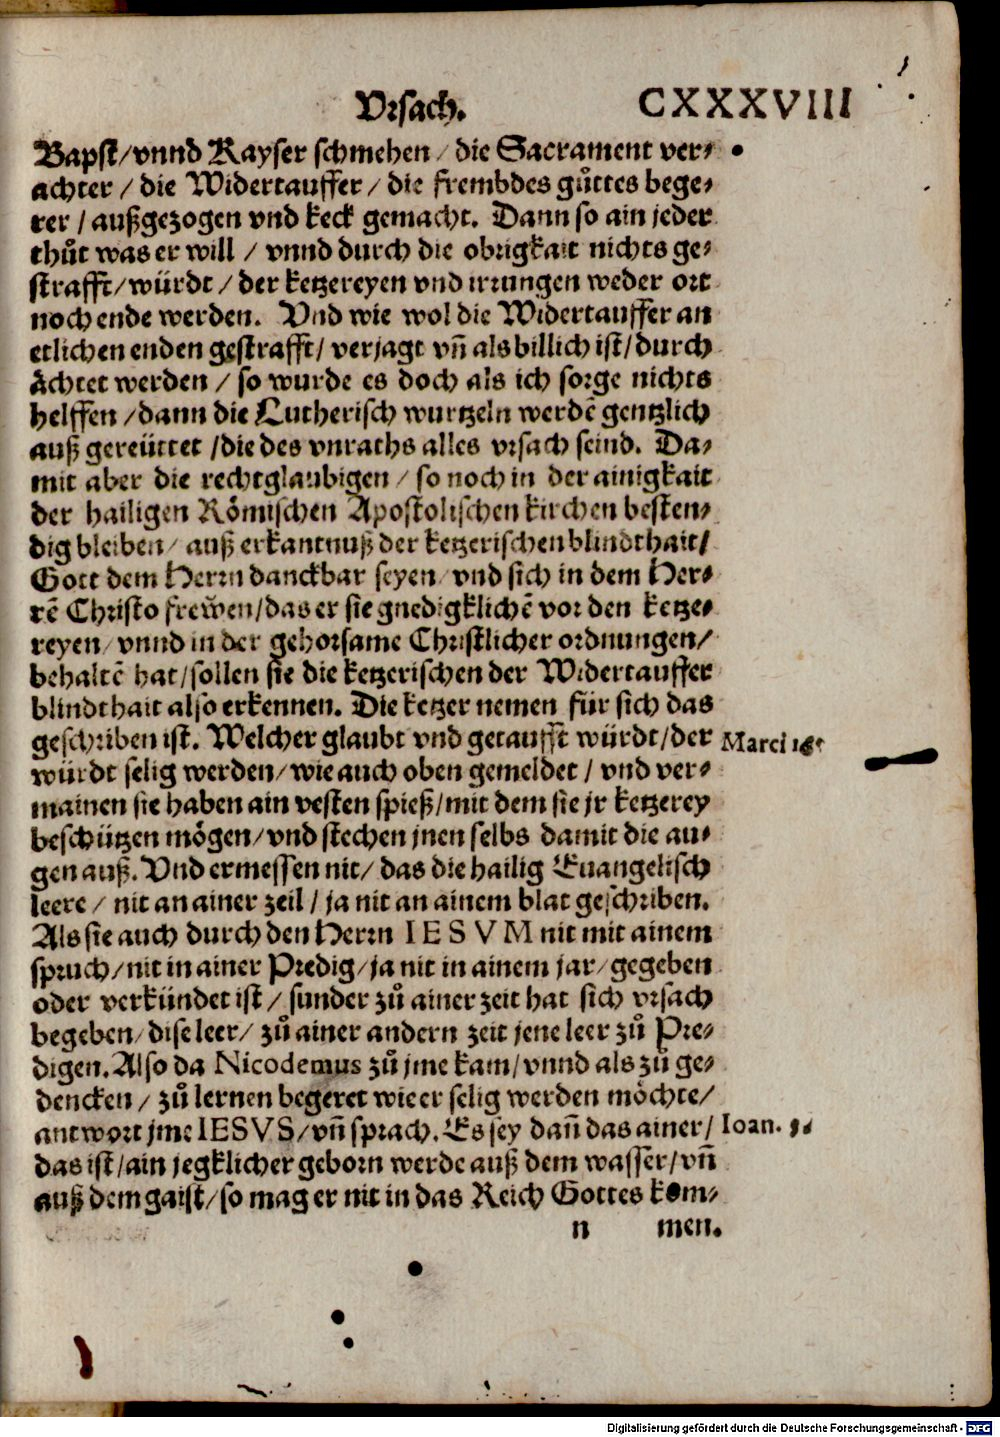 Vrsach. CXXXVIII
Bapst/vnnd Kayser schmehen/die Sacrament ver⸗
achter/die Widertauffer/die frembdes gůttes bege⸗
rer/außgezogen vnd keck gemacht. Dann so ain jeder
thůt was er will/vnnd durch die obrigkait nichts ge⸗
strafft/würdt/der ketzereyen vnd irrungen weder ort
noch ende werden. Vnd wie wol die Widertauffer an
etlichen enden gestrafft/verjagt vñ als billich ist/durch
ächtet werden/so wurde es doch als ich sorge nichts
helffen/dann die Lutherisch wurtzeln werdẽ gentzlich
auß gereüttet/die des vnraths alles vrsach seind. Da⸗
mit aber die rechtglaubigen/so noch in der ainigkait
der hailigen Römischen Apostolischen kirchen besten⸗
dig bleiben/auß erkantnuß der ketzerischen blindthait/
Gott dem Herrn danckbar seyen/vnd sich in dem Her⸗
rẽ Christo frewen/das er sie gnedigklichẽ vor den ketze⸗
reyen/vnnd in der gehorsame Christlicher ordnungen/
behaltẽ hat/sollen sie die ketzerischen der Widertauffer
blindthait also erkennen. Die ketzer nemen für sich das
geschriben ist. Welcher glaubt vnd getaufft würdt/der
Marci 16.
würdt selig werden/wie auch oben gemeldet/vnd ver⸗
mainen sie haben ain vesten spieß/mit dem sie jr ketzerey
beschützen mögen/vnd stechen jnen selbs damit die au⸗
gen auß. Vnd ermessen nit/das die hailig Euangelisch
leere/nit an ainer zeil/ja nit an ainem blat geschriben.
Als sie auch durch den Herrn IESVM nit mit ainem
spruch/nit in ainer Predig/ja nit in ainem jar/gegeben
oder verkündet ist/sunder zů ainer zeit hat sich vrsach
begeben/dise leer/zů ainer andern zeit jene leer zů Pre⸗
digen. Also da Nicodemus zů jme kam/vnnd als zů ge⸗
dencken/zů lernen begeret wie er selig werden möchte/
antwort jme IESVS/vñ sprach. Es sey dañ das ainer/
Ioan. 3.
das ist/ain jegklicher geborn werde auß dem wasser/vñ
auß dem gaist/so mag er nit in das Reich Gottes kom⸗
n men.
Digitalisierung gefördert durch die Deutsche Forschungsgemeinschaft - DFG